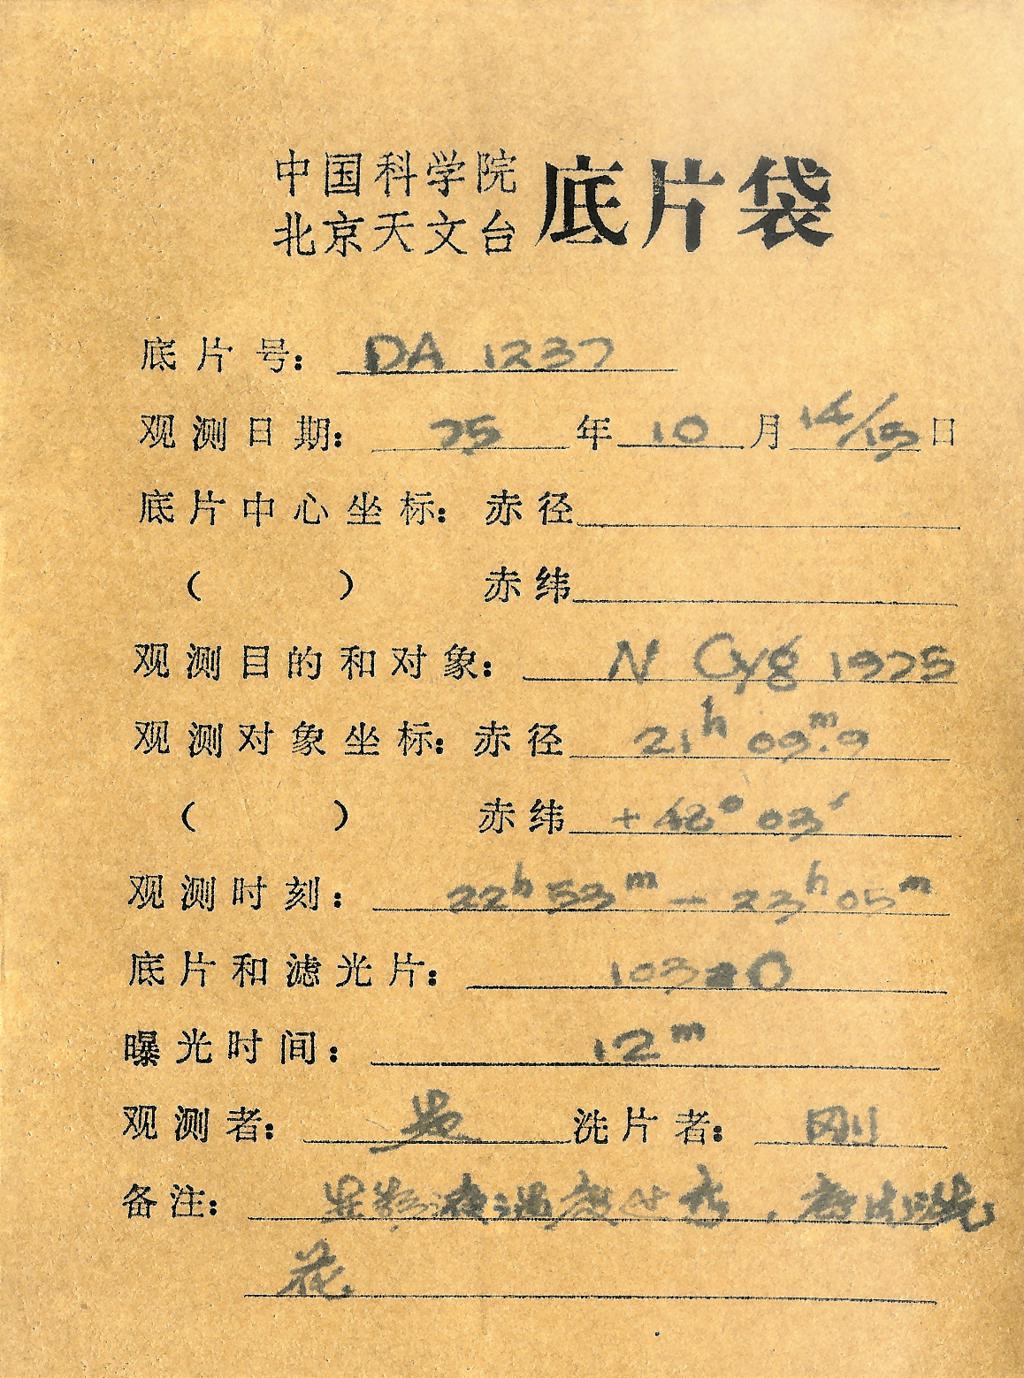 中国科学院
北京天文台 底片袋
底片号: DA 1237
观测日期: 75年10月14/15日
底片中心坐标: 赤径
( ) 赤纬
观测目的和对象: N Cyg 1975
观测对象坐标: 赤径 21h 09m.9
( ) 赤纬 +48° 03′
观测时刻: 22h 53m — 23h 05m
底片和滤光片: 103aO
曝光时间: 12m
观测者: 洗片者: 刚
备注: 显影液温度过高,
花.